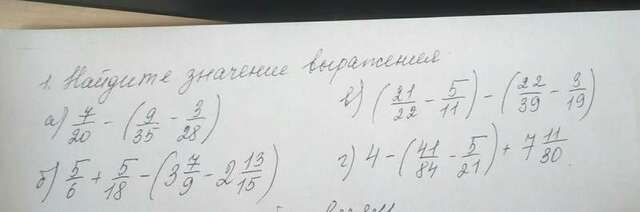 1. Найдите значение выражения
а) 7/20 - (9/35 - 3/28)
б) 5/6 + 5/18 - (3 7/9 - 2 13/15)
в) (21/22 - 5/11) - (22/39 - 3/19)
г) 4 - (41/84 - 5/21) + 7 11/30